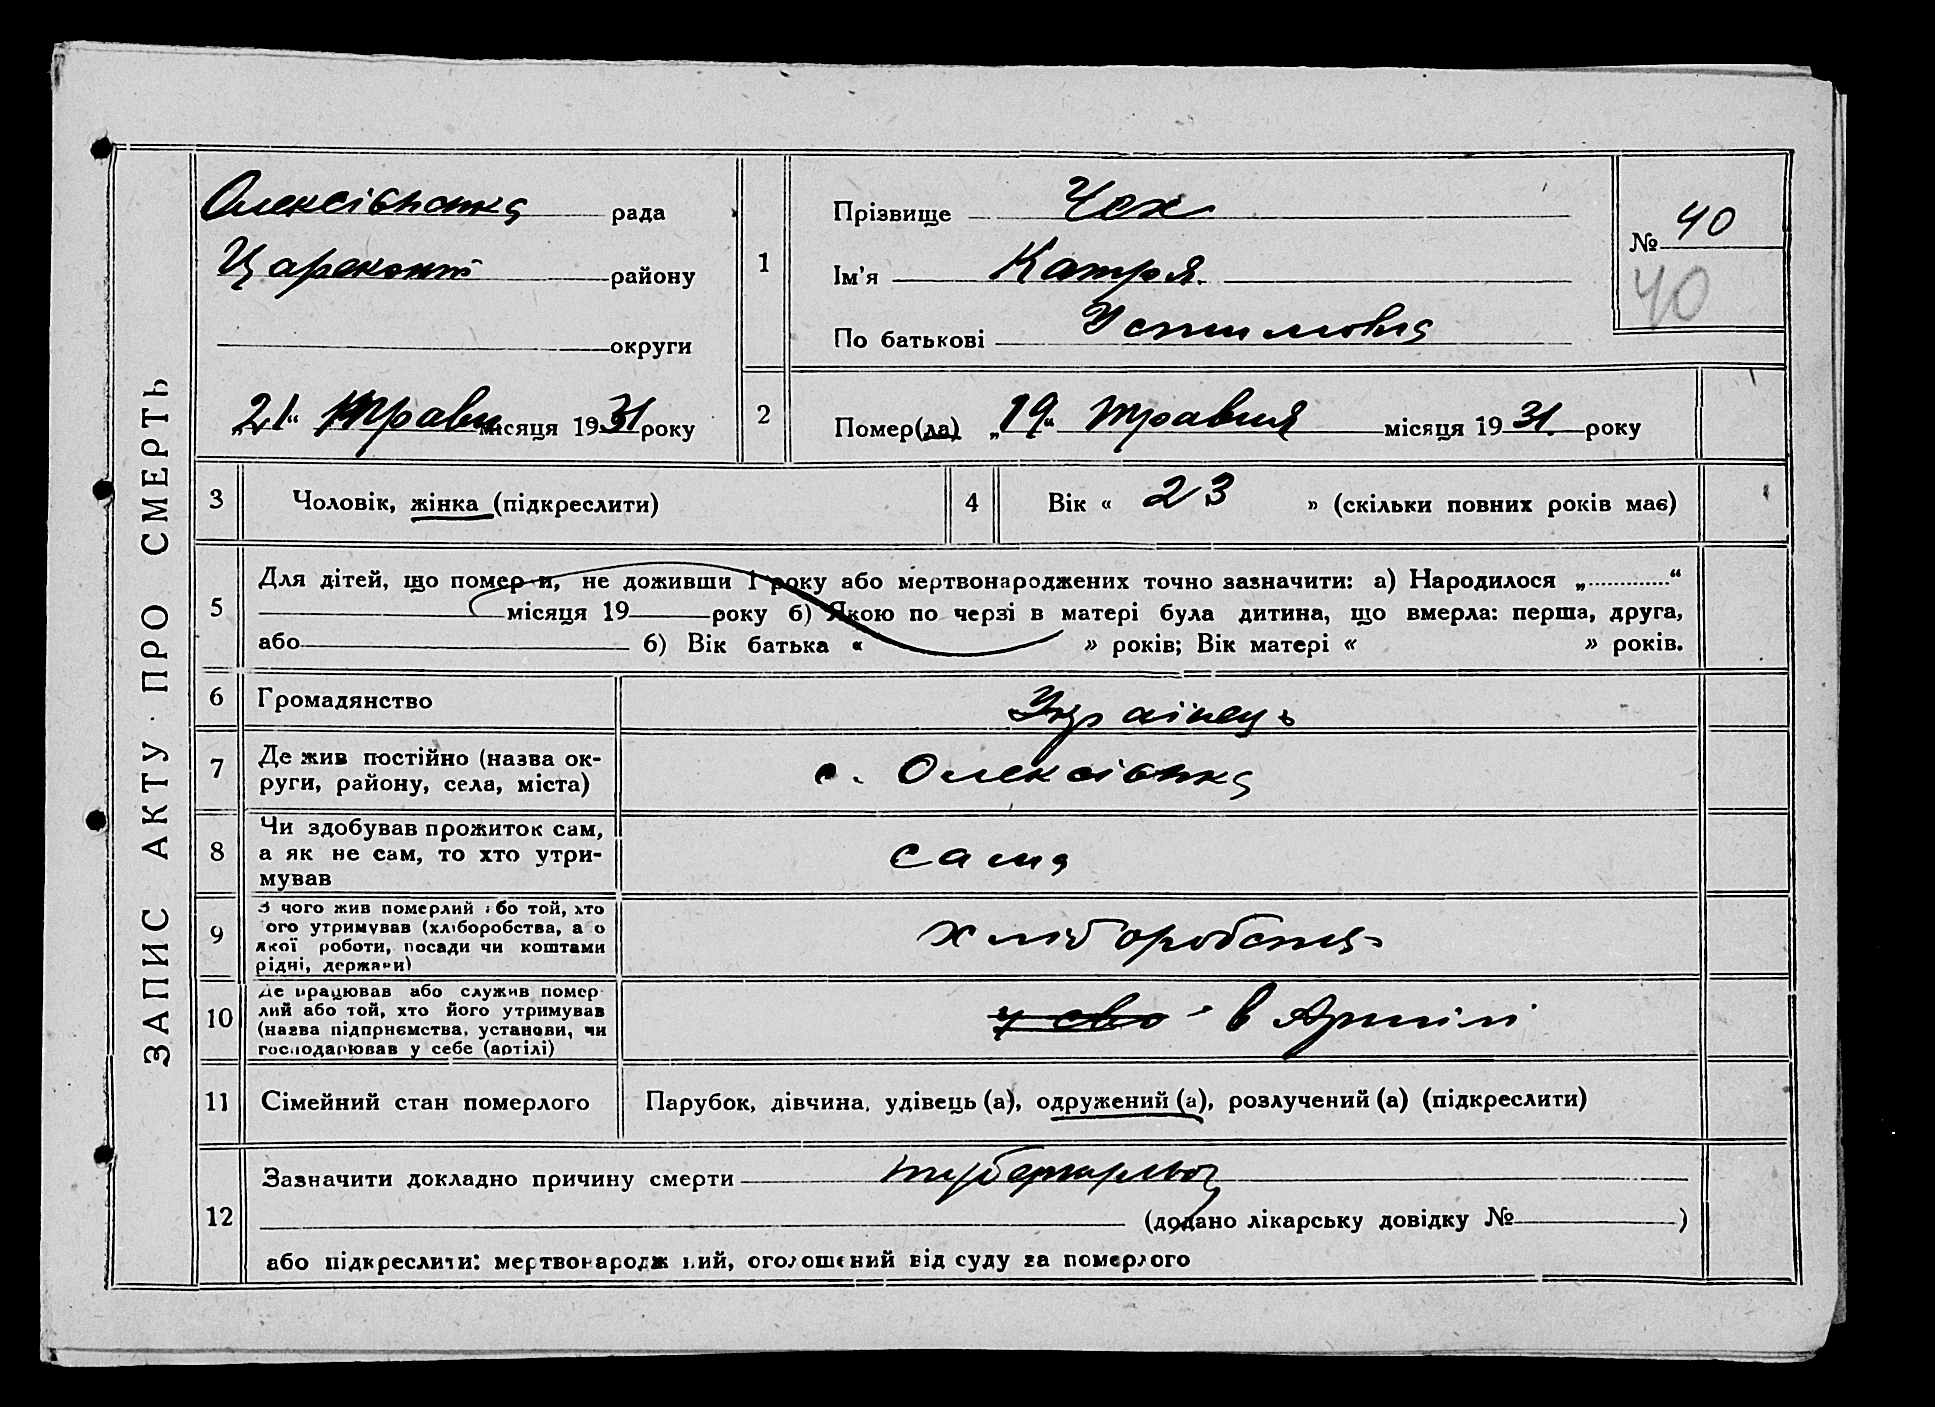 ЗАПИС АКТУ ПРО СМЕРТЬ
Олексієвська рада
району
округи
„21“ травн місяця 1931 року
1
Прізвище Чех
Ім'я Катря
По батькові Устимовна
№ 40
40
2
Помер(ла) „19“ травня місяця 1931 року
3 Чоловік, жінка (підкреслити)
4 Вік « 23 » (скільки повних років має)
5
Для дітей, що помер и, не доживши 1 року або мертвонароджених точно зазначити: а) Народилося „............“
місяця 19 року б) Якою по черзі в матері була дитина, що вмерла: перша, друга,
або б) Вік батька « » років; Вік матері « » років.
6 Громадянство Украінець
7 Де жив постійно (назва ок-
руги, району, села, міста)
с. Олексієвка
8 Чи здобував прожиток сам,
а як не сам, то хто утри-
мував
сама
9 З чого жив померлий або той, хто
ого утримував (хліборобства, а о
якої роботи, посади чи коштами
рідні, держави)
хліборобства
10 Де працював або служив помер
лий або той, хто його утримував
(назва підприємства, установи, чи
господарював у себе (артілі)
у сво - в Артілі
11 Сімейний стан померлого
Парубок, дівчина, удівець (а), одружений (а), розлучений (а) (підкреслити)
12
Зазначити докладно причину смерти туберкульоз
(додано лікарську довідку № )
або підкреслити: мертвонародж ний, оголошений від суду за померлого